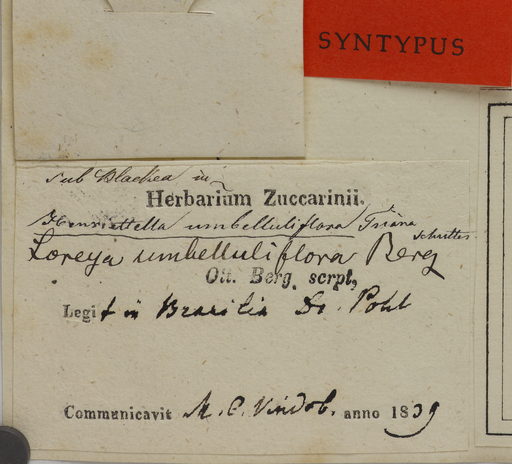 SYNTYPUS
sub Blakea in
Herbarium Zuccarinii.
Henriettella umbelluliflora Triana
Loreya umbelluliflora Berg
Ott. Berg scrpt,
Legit in Brasilia Dr. Pohl
Communicavit M. C. Vindob. anno 1839